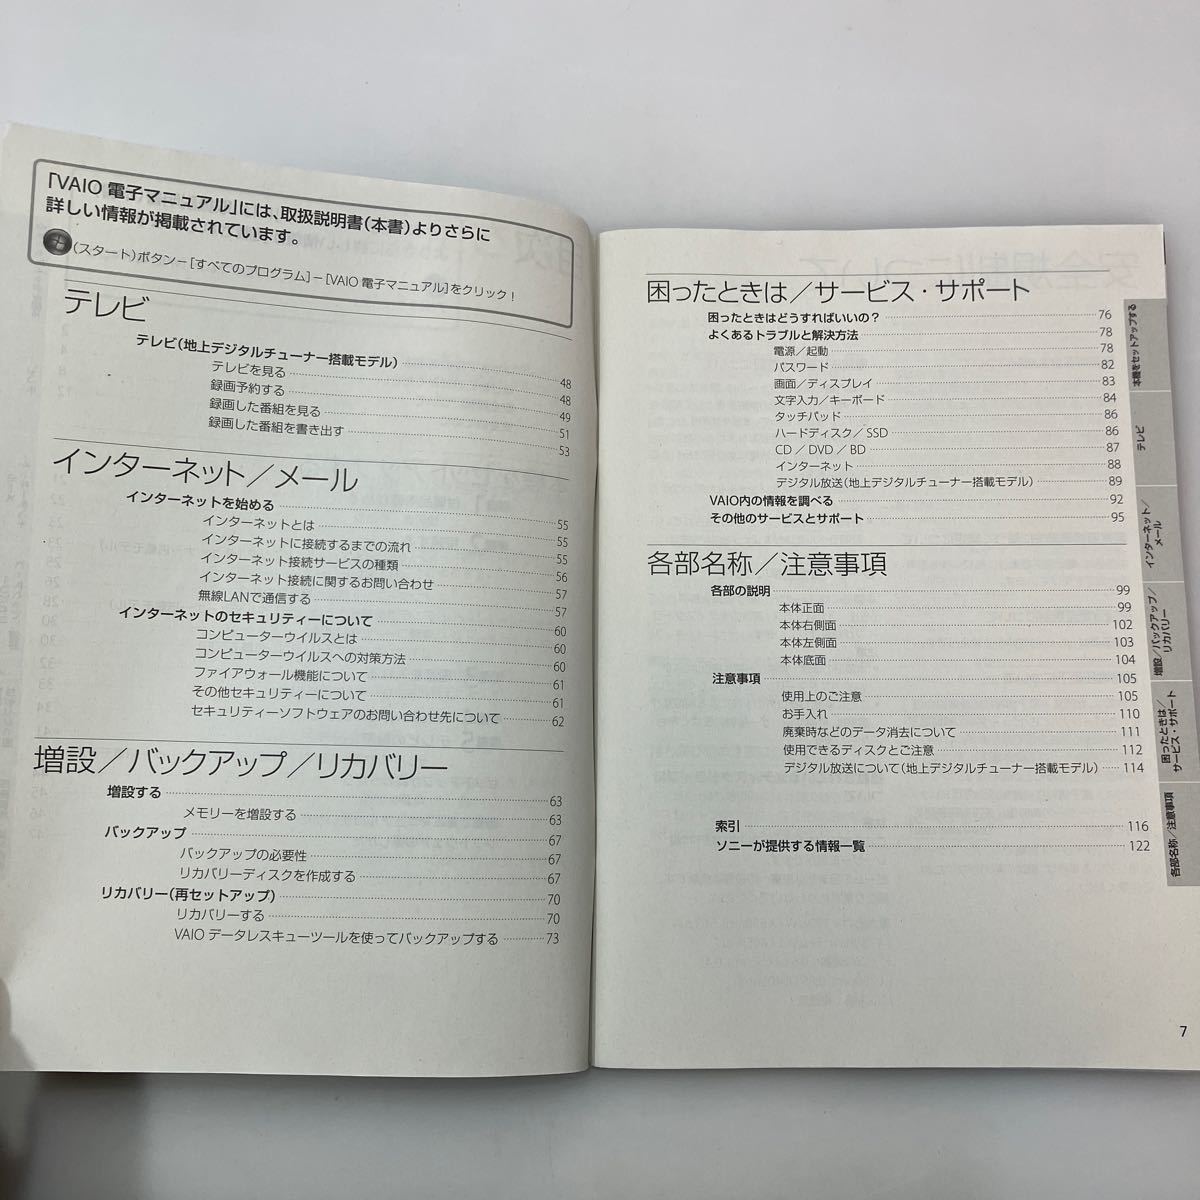 「VAIO 電子マニュアル」には、取扱説明書(本書)よりさらに
詳しい情報が掲載されています。
(スタート)ボタン－[すべてのプログラム]－[VAIO 電子マニュアル]をクリック！
テレビ
テレビ(地上デジタルチューナー搭載モデル) 48
テレビを見る 48
録画予約する 49
録画した番組を見る 51
録画した番組を書き出す 53
インターネット／メール
インターネットを始める 55
インターネットとは 55
インターネットに接続するまでの流れ 55
インターネット接続サービスの種類 56
インターネット接続に関するお問い合わせ 57
無線LANで通信する 57
インターネットのセキュリティーについて 60
コンピューターウイルスとは 60
コンピューターウイルスへの対策方法 60
ファイアウォール機能について 61
その他セキュリティーについて 61
セキュリティーソフトウェアのお問い合わせ先について 62
増設／バックアップ／リカバリー
増設する 63
メモリーを増設する 63
バックアップ 67
バックアップの必要性 67
リカバリーディスクを作成する 67
リカバリー(再セットアップ) 70
リカバリーする 70
VAIO データレスキューツールを使ってバックアップする 73
困ったときは／サービス・サポート
困ったときはどうすればいいの？ 76
よくあるトラブルと解決方法 78
電源／起動 78
パスワード 82
画面／ディスプレイ 83
文字入力／キーボード 84
タッチパッド 86
ハードディスク／SSD 86
CD／DVD／BD 87
インターネット 88
デジタル放送(地上デジタルチューナー搭載モデル) 89
VAIO内の情報を調べる 92
その他のサービスとサポート 95
各部名称／注意事項
各部の説明 99
本体正面 99
本体右側面 102
本体左側面 103
本体底面 104
注意事項 105
使用上のご注意 105
お手入れ 110
廃棄時などのデータ消去について 111
使用できるディスクとご注意 112
デジタル放送について(地上デジタルチューナー搭載モデル) 114
索引 116
ソニーが提供する情報一覧 122
本機をセットアップする
テレビ
インターネット／
メール
増設／バックアップ／
リカバリー
困ったときは／
サービス・サポート
各部名称／注意事項
7